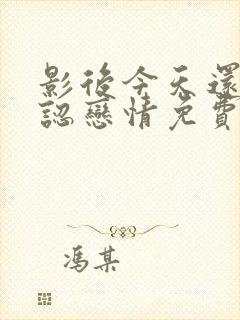 影後今天還
認戀情免費
馮某